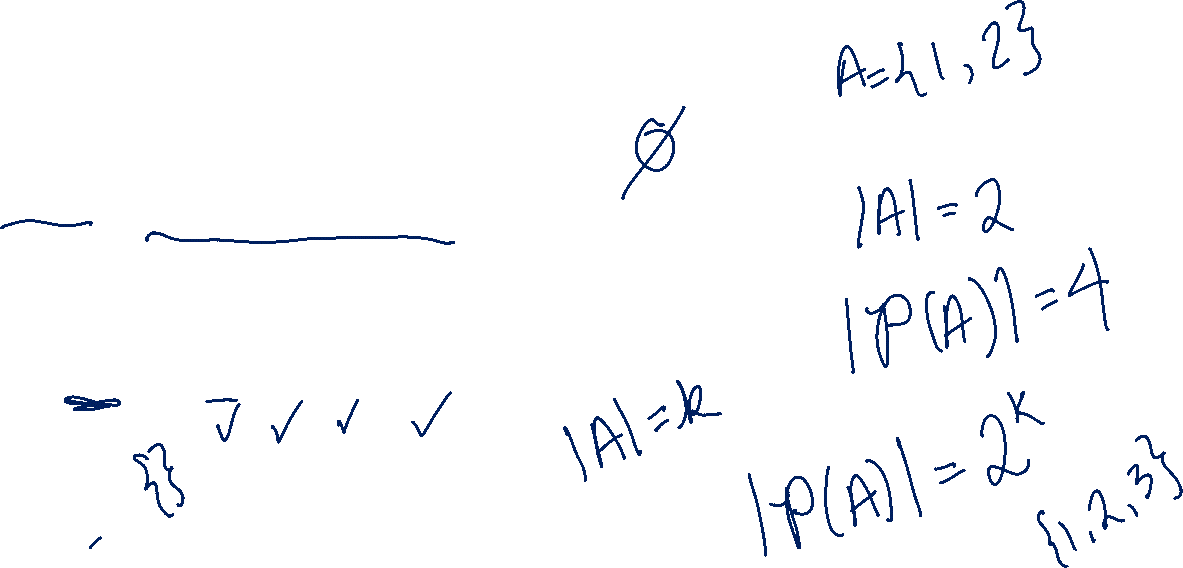 A={1,2}
∅
|A|=2
|P(A)|=4
✓ ✓ ✓ ✓
|A|=k
{}
|P(A)|=2^k
{1,2,3}